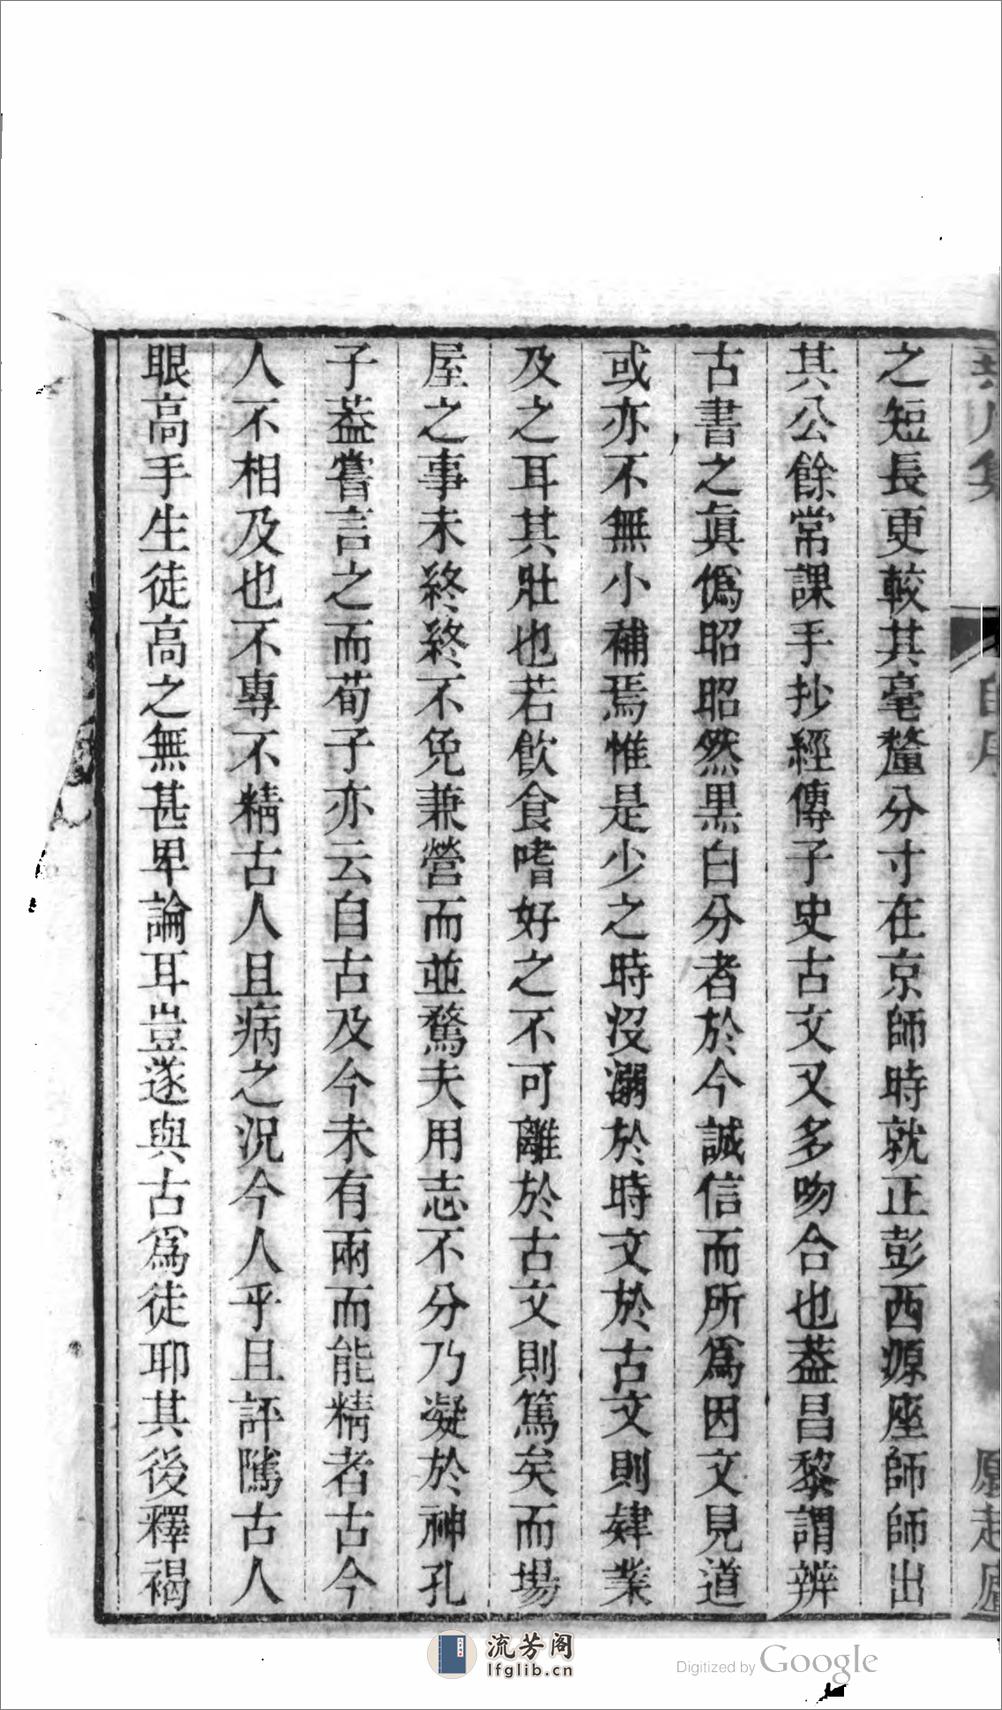 自序
之短長更較其毫釐分寸在京師時就正彭西源座師師出
其公餘常課手抄經傳子史古文又多吻合也葢昌黎謂辨
古書之眞僞昭昭然黑白分者於今誠信而所爲因文見道
或亦不無小補焉惟是少之時沒溺於時文於古文則肄業
及之耳其壯也若飮食嗜好之不可離於古文則篤矣而場
屋之事未終終不免兼營而並騖夫用志不分乃凝於神孔
子葢嘗言之而荀子亦云自古及今未有兩而能精者古今
人不相及也不專不精古人且病之況今人乎且評隲古人
眼高手生徒高之無甚卑論耳豈遂與古爲徒耶其後釋褐
流芳阁
lfglib.cn
Digitized by Google